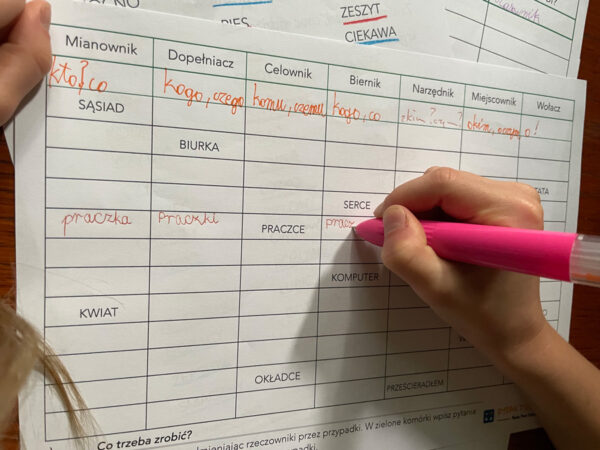 PIES
ZESZYT
CIEKAWA
Mianownik Dopełniacz Celownik Biernik Narzędnik Miejscownik Wołacz
kto? co kogo, czego komu, czemu kogo, co o!
SĄSIAD
BIURKA
SERCE
praczka Praczki PRACZCE pracz
KOMPUTER
KWIAT
OKŁADCE PRZEŚCIERADŁEM
Co trzeba zrobić?
rzeczowniki przez przypadki. W zielone komórki wpisz pytania